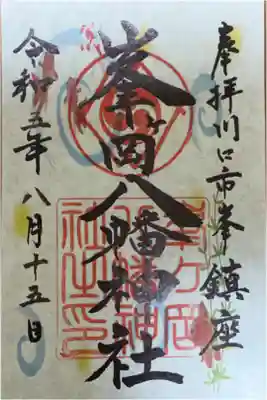 奉拝川口市峯鎮座
峯ヶ岡八幡神社
令和五年八月十五日
峯ヶ岡
八幡神
社之印